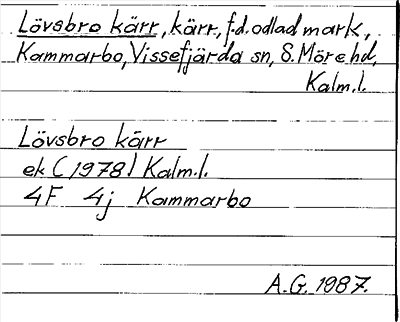 Lövsbro kärr, kärr, f.d. odlad mark,
Kammarbo, Vissefjärda sn, S. Möre hd,
Kalm.l.
Lövsbro kärr
ek (1978) Kalm.l.
4F 4j Kammarbo
A.G. 1987.